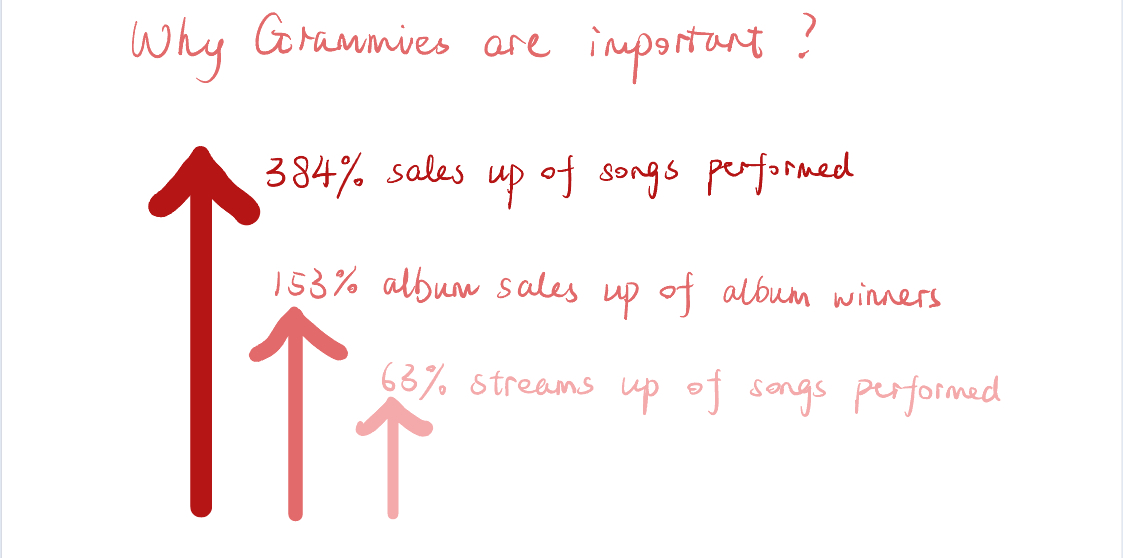 Why Grammies are important ?
384% sales up of songs performed
153% album sales up of album winners
63% streams up of songs performed